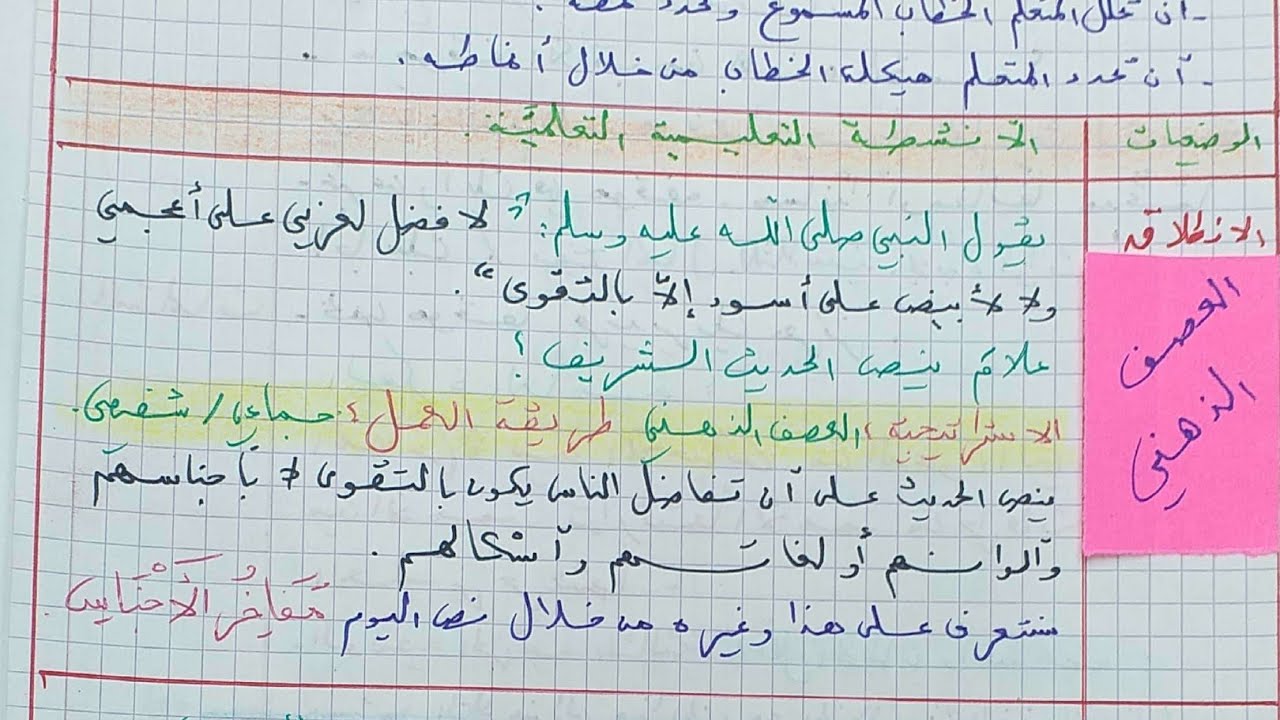 - أن يحلل المتعلم الخطاب المسموع ويحدد نمطه.
- أن يحدد المتعلم هيكلة الخطاب من خلال أنماطه.
الوضعيات
الأنشطة التعليمية التعلمية.
الانطلاقة
يقول النبي صلى الله عليه وسلم: "لا فضل لعربي على أعجمي
ولا لأبيض على أسود إلّا بالتقوى".
علامَ ينص الحديث الشريف؟
الاستراتيجية: العصف الذهني طريقة العمل: جماعي/شفهي.
ينص الحديث على أن تفاضل الناس يكون بالتقوى لا بأجناسهم
وألوانهم أو لغاتهم وأشكالهم.
سنتعرف على هذا وغيره من خلال نص اليوم تَفَاخُرُ الأَجْنَاسِ.
العصف
الذهني